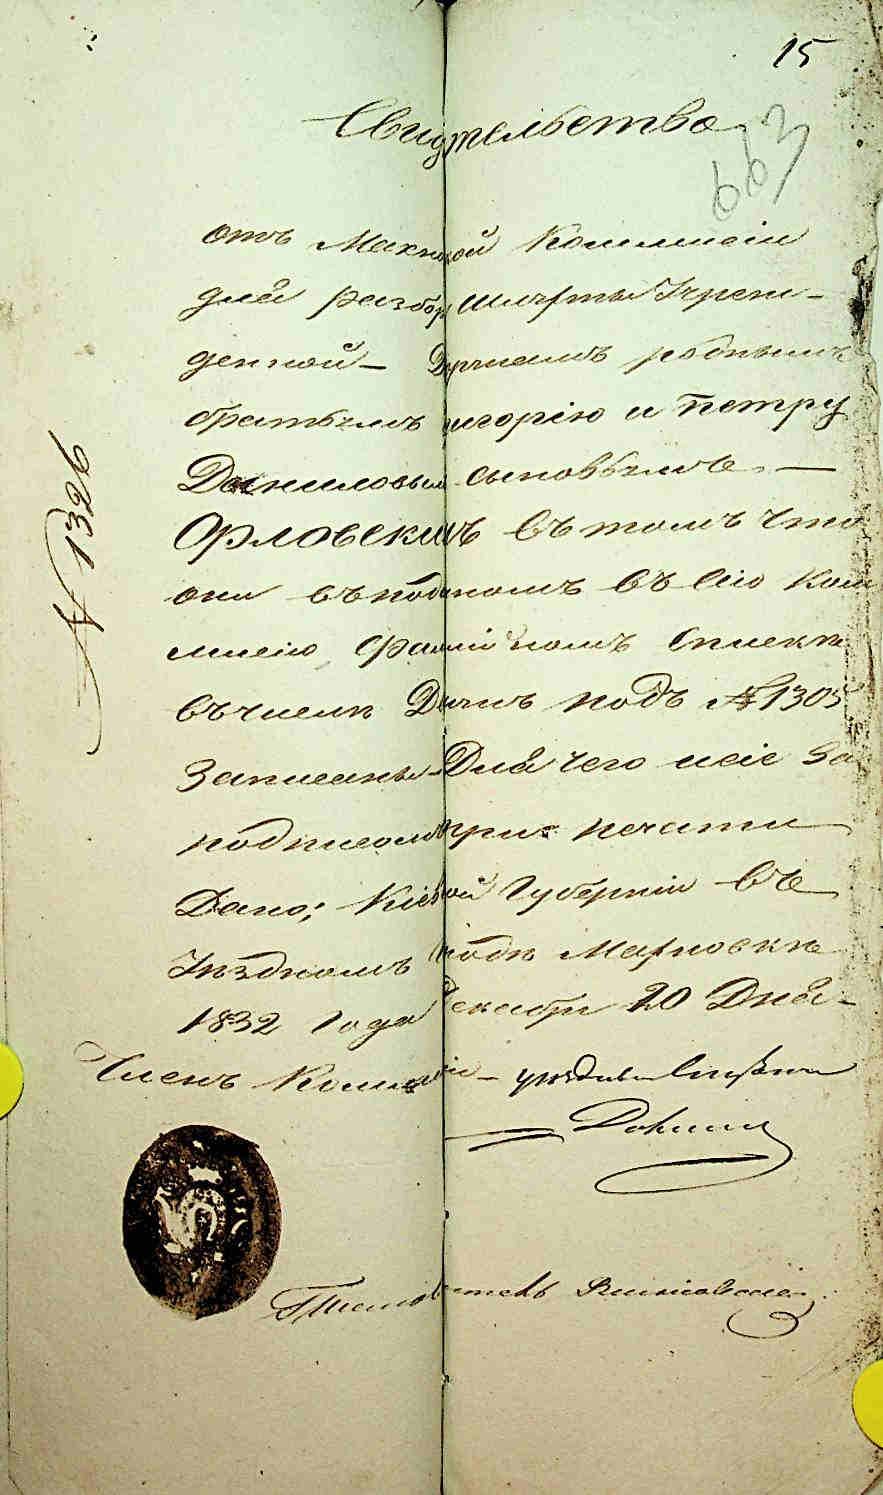 15
Свидѣтельство
663
отъ Махновской Коммисіи
для разбора Шляхты Учреж-
денной - Дворянамъ роднымъ
братьямъ Григорію и Петру
Даниловымъ сыновьямъ
Орловскимъ въ томъ что
они въ поданномъ въ сію Ком
мисію Фамилномъ Спискѣ
въ числѣ Дворянъ подъ №1305
Записаны - Для чего и сіе За
подписомъ при печати
Дано; Кіевской Губерніи въ
Уѣздномъ городѣ Махновкѣ
1832 Года Декабря 20 Дня -
Членъ Коммисіи -
N 1326